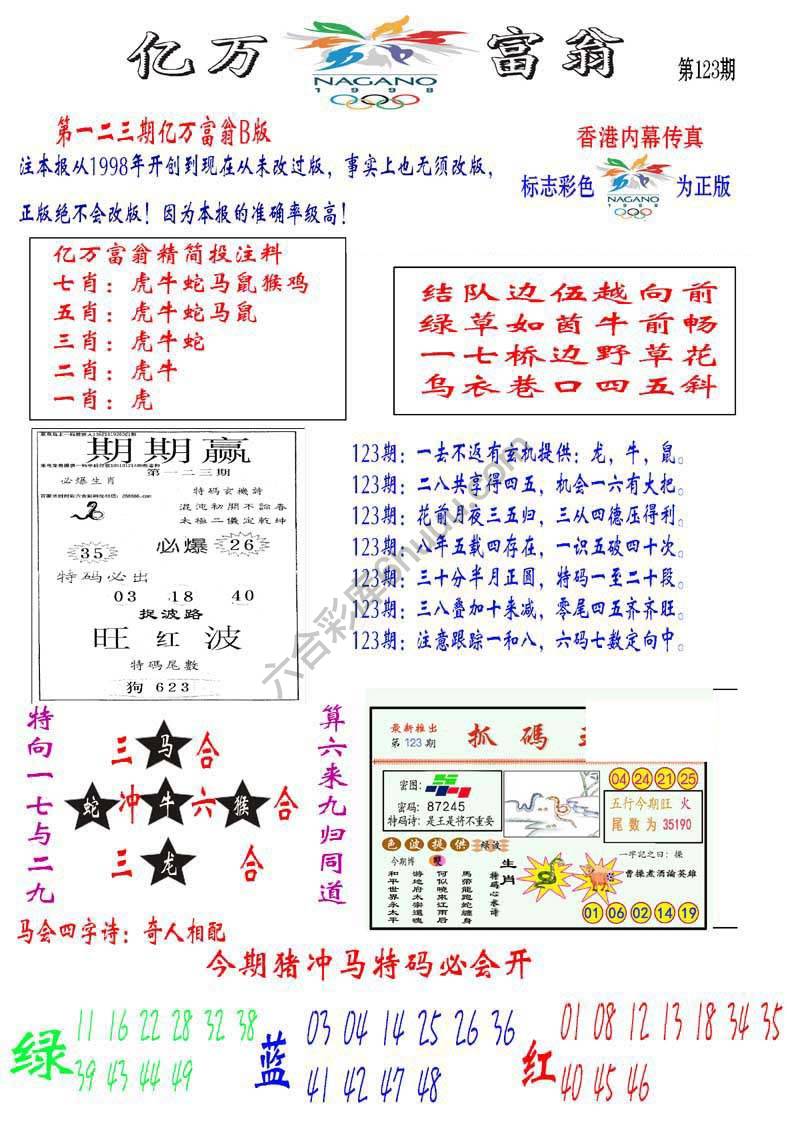 亿万
NAGANO
1998
富翁
第123期
第一二三期亿万富翁B版
注本报从1998年开创到现在从未改过版，事实上也无须改版，
正版绝不会改版！因为本报的准确率级高！
香港内幕传真
标志彩色
NAGANO
1998
为正版
亿万富翁精简投注料
七肖：虎牛蛇马鼠猴鸡
五肖：虎牛蛇马鼠
三肖：虎牛蛇
二肖：虎牛
一肖：虎
结队边伍越向前
绿草如茵牛前畅
一七桥边野草花
乌衣巷口四五斜
期期赢
第一二三期
必爆生肖
特码玄機詩
混沌初開不論春
未極二儀定乾坤
35
必爆
26
特码必出
03 18 40
捉波路
旺红波
特码尾數
狗623
123期：一去不返有玄机提供：龙，牛，鼠。
123期：二八共享得四五，机会一六有大把。
123期：花前月夜三五归，三从四德压得利。
123期：八年五载四存在，一识五破四十次。
123期：三十分半月正圆，特码一至二十段。
123期：三八叠加十来减，零尾四五齐齐旺。
123期：注意跟踪一和八，六码七数定向中。
六合彩库
特向一七与二九
三马合
蛇冲牛六猴合
三龙合
算六来九归同道
最新推出
第123期
抓碼
密图：
密码：87245
特码诗：是王是将不重要
04 24 21 25
五行今期旺 火
尾数为 35190
色波提供
绿波
今期博
雙
和平世界永太平
游地府太崇遗魂
何似晓来江雨后
馬帶龍跑蛇纏身
特碼心水诗
生肖
一字記之曰：操
曹操煮酒論英雄
01 06 02 14 19
马会四字诗：奇人相配
今期猪冲马特码必会开
绿
11 16 22 28 32 38
39 43 44 49
蓝
03 04 14 25 26 36
41 42 47 48
红
01 08 12 13 18 34 35
40 45 46